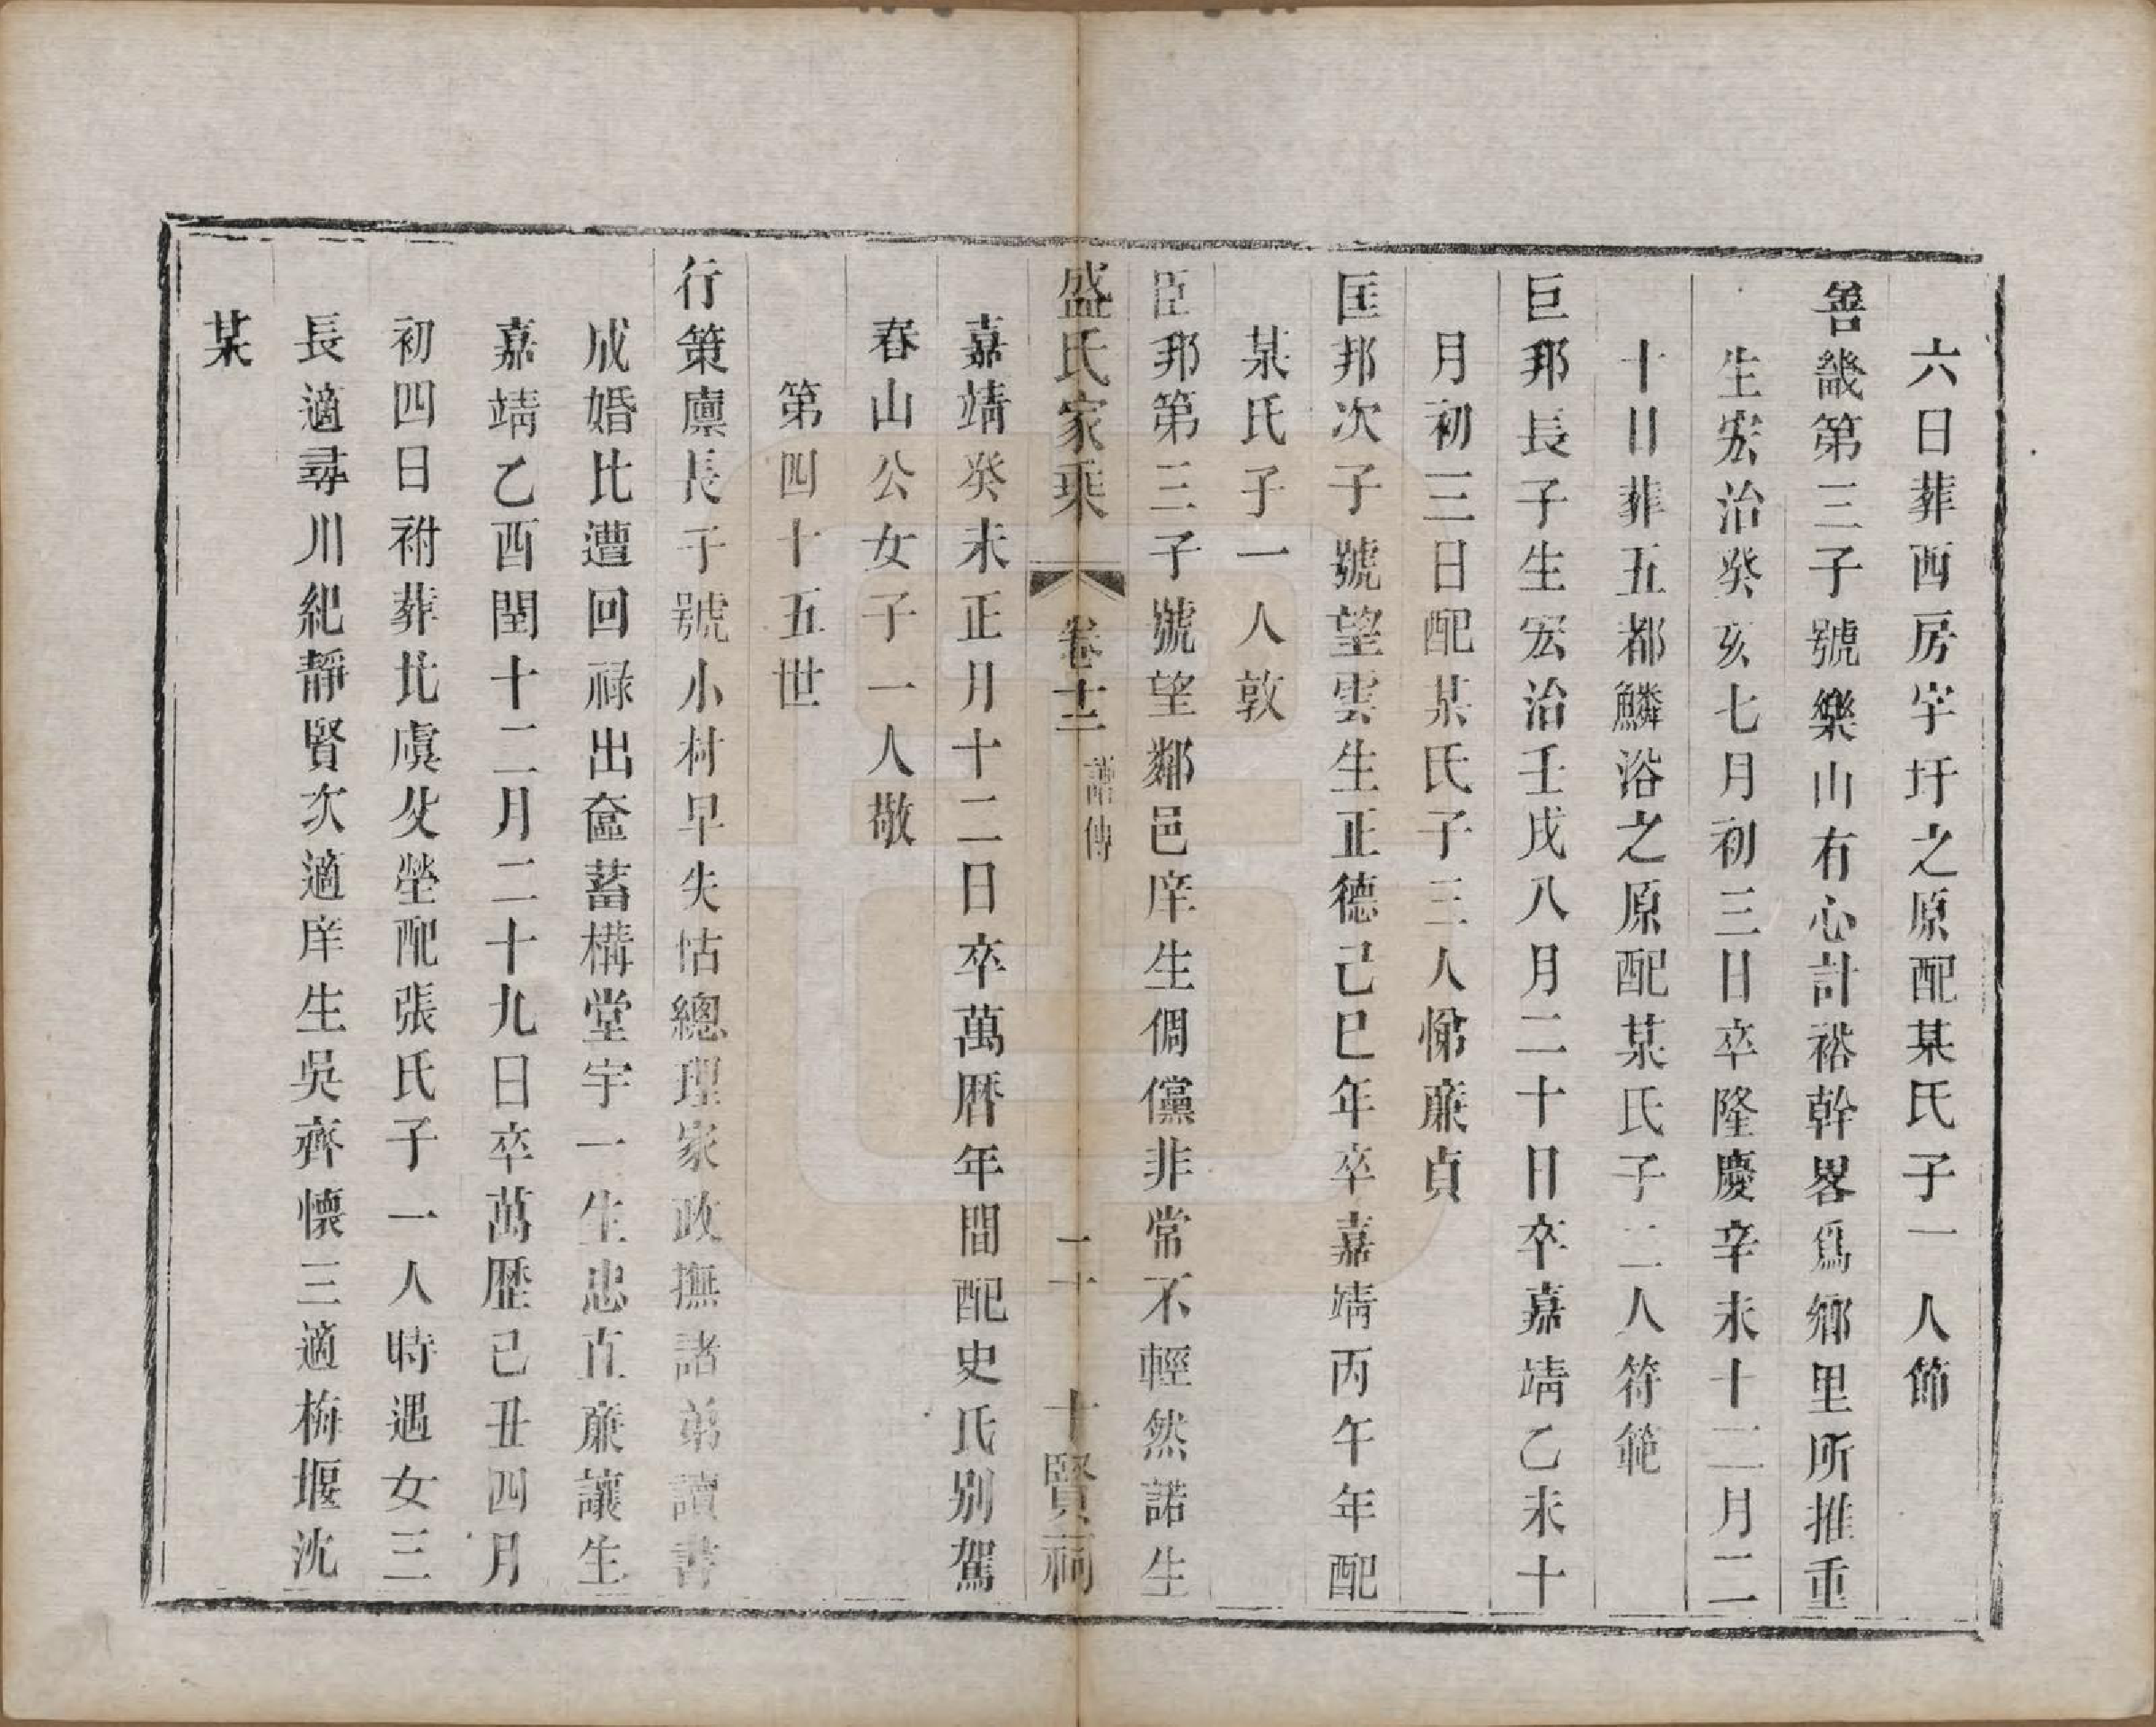 六日葬西房字圩之原配某氏子一人節
善畿第三子號樂山有心計裕幹畧爲鄉里所推重
生宏治癸亥七月初三日卒隆慶辛未十二月二
十日葬五都鱗浴之原配某氏子二人符範
巨邦長子生宏治壬戌八月二十日卒嘉靖乙未十
月初三日配某氏子三人悌亷貞
匡邦次子號望雲生正德己巳年卒嘉靖丙午年配
某氏子一人敦
臣邦第三子號望鄰邑庠生倜儻非常不輕然諾生
盛氏家乘 卷十二 譜傳 二十 十賢祠
嘉靖癸未正月十二日卒萬曆年間配史氏别駕
春山公女子一人敬
第四十五世
行策廪長子號小村早失怙總理家政撫諸弟讀書
成婚比遭回祿出奩蓄構堂宇一生忠直亷讓生
嘉靖乙酉閏十二月二十九日卒萬歷己丑四月
初四日祔葬北虞攵塋配張氏子一人時遇女三
長適尋川紀靜賢次適庠生吳齊懷三適梅堰沈
某